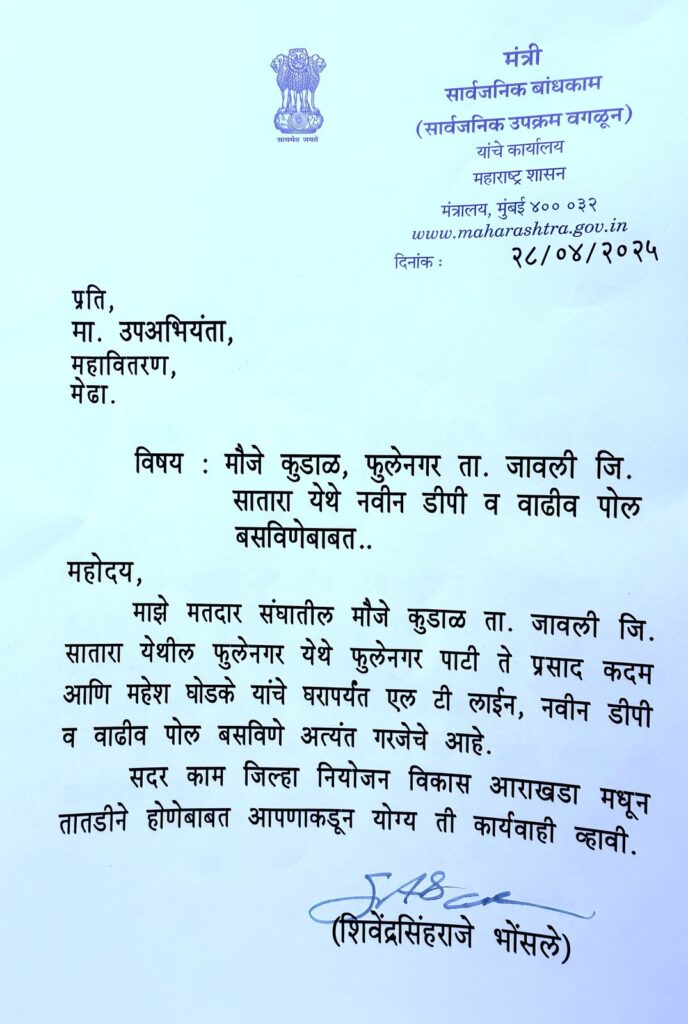 सत्यमेव जयते
मंत्री
सार्वजनिक बांधकाम
(सार्वजनिक उपक्रम वगळून)
यांचे कार्यालय
महाराष्ट्र शासन
मंत्रालय, मुंबई ४०० ०३२
www.maharashtra.gov.in
दिनांक : २८/०४/२०२५
प्रति,
मा. उपअभियंता,
महावितरण,
मेढा.
विषय : मौजे कुडाळ, फुलेनगर ता. जावली जि.
सातारा येथे नवीन डीपी व वाढीव पोल
बसविणेबाबत..
महोदय,
माझे मतदार संघातील मौजे कुडाळ ता. जावली जि.
सातारा येथील फुलेनगर येथे फुलेनगर पाटी ते प्रसाद कदम
आणि महेश घोडके यांचे घरापर्यंत एल टी लाईन, नवीन डीपी
व वाढीव पोल बसविणे अत्यंत गरजेचे आहे.
सदर काम जिल्हा नियोजन विकास आराखडा मधून
तातडीने होणेबाबत आपणाकडून योग्य ती कार्यवाही व्हावी.
(शिवेंद्रसिंहराजे भोंसले)